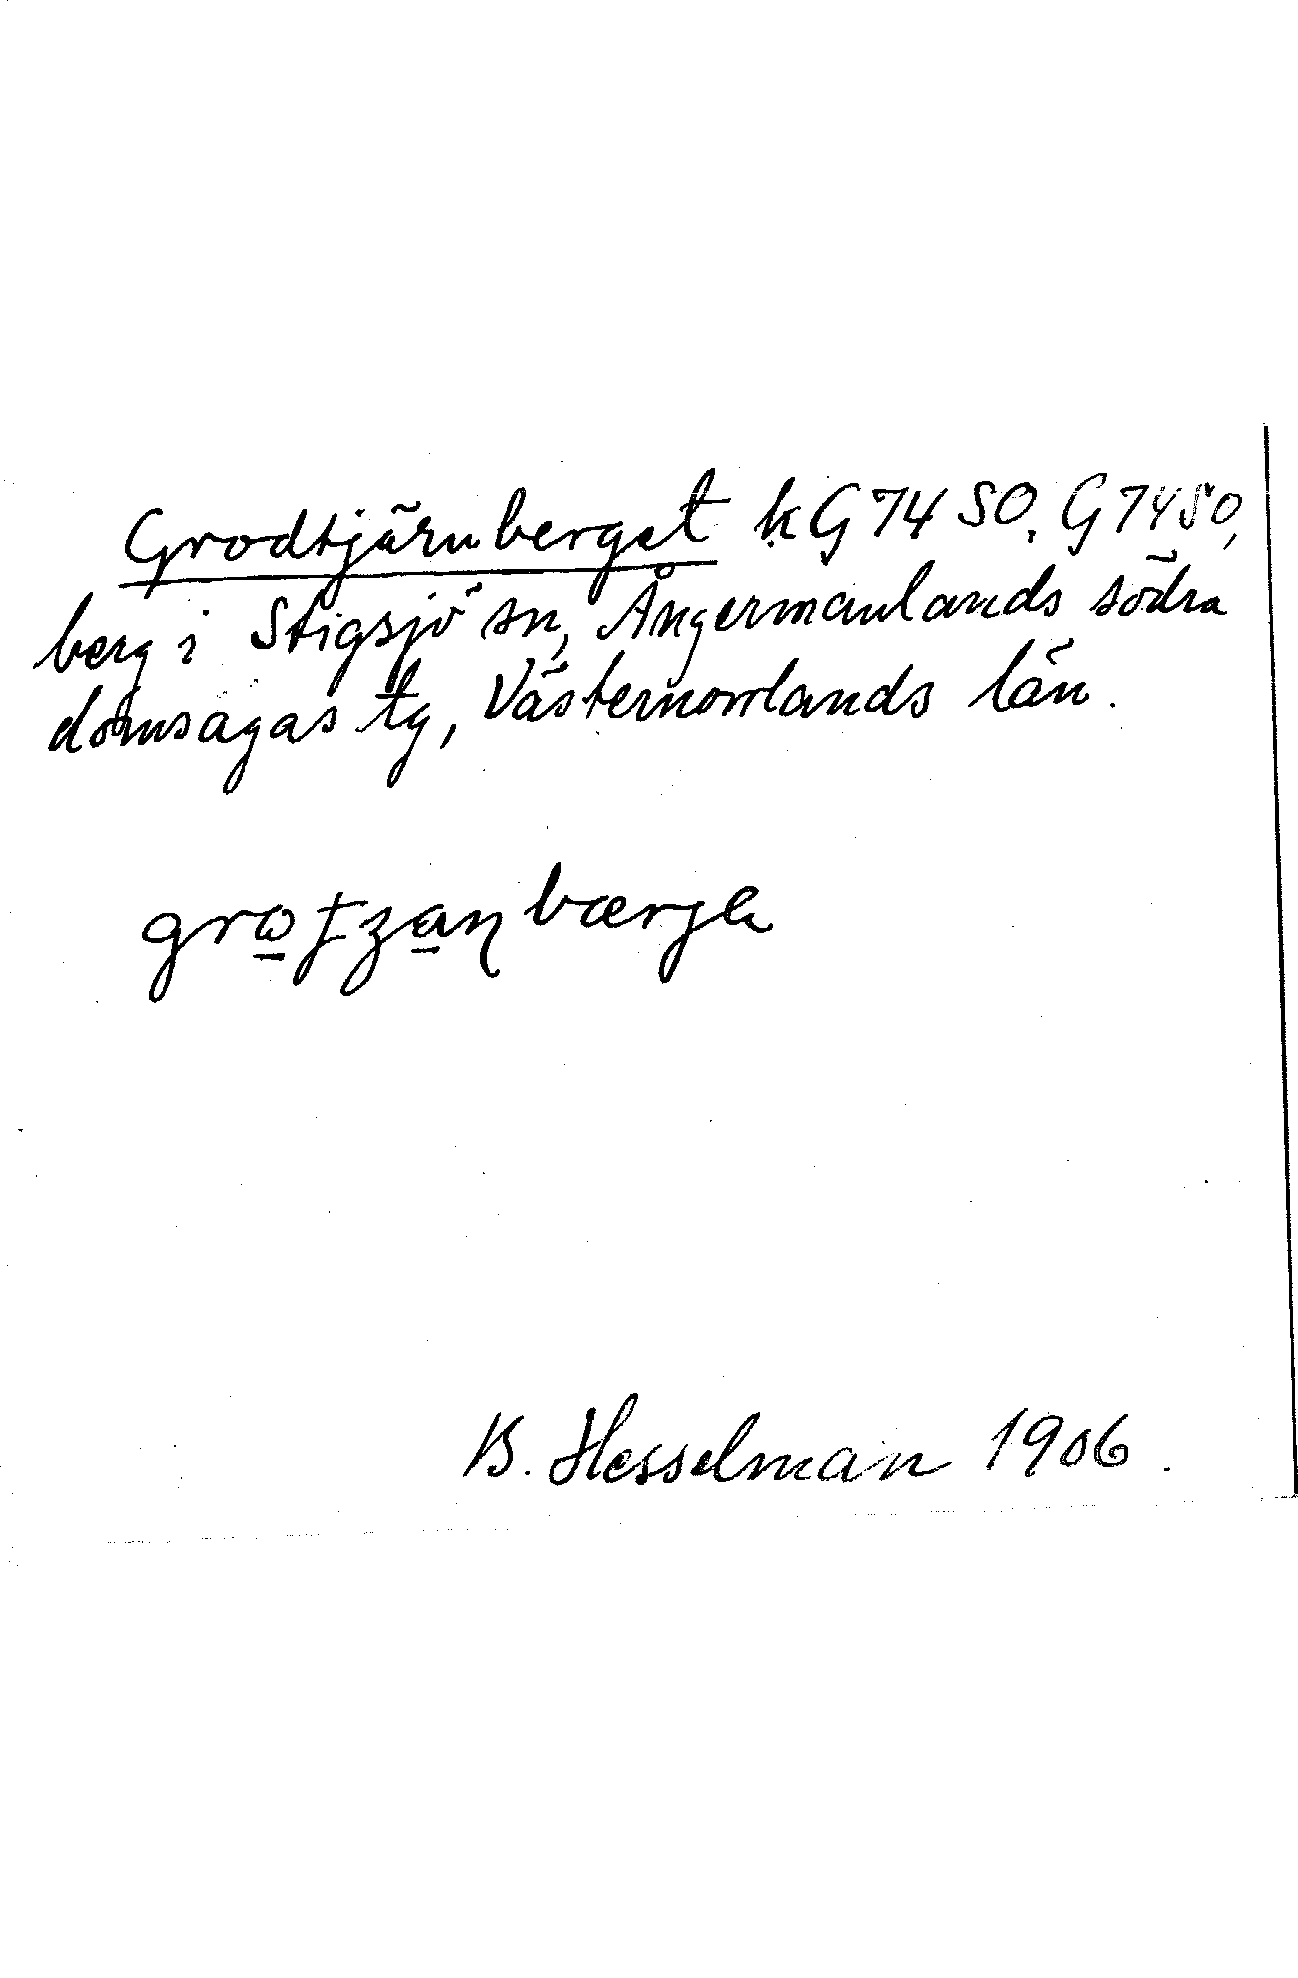 Grodtjärnberget kG 74 SO. G 74 SO,
berg i Stigsjö sn, Ångermanlands södra
domsagas tg, Västernorrlands län.
B. Hesselman 1906.